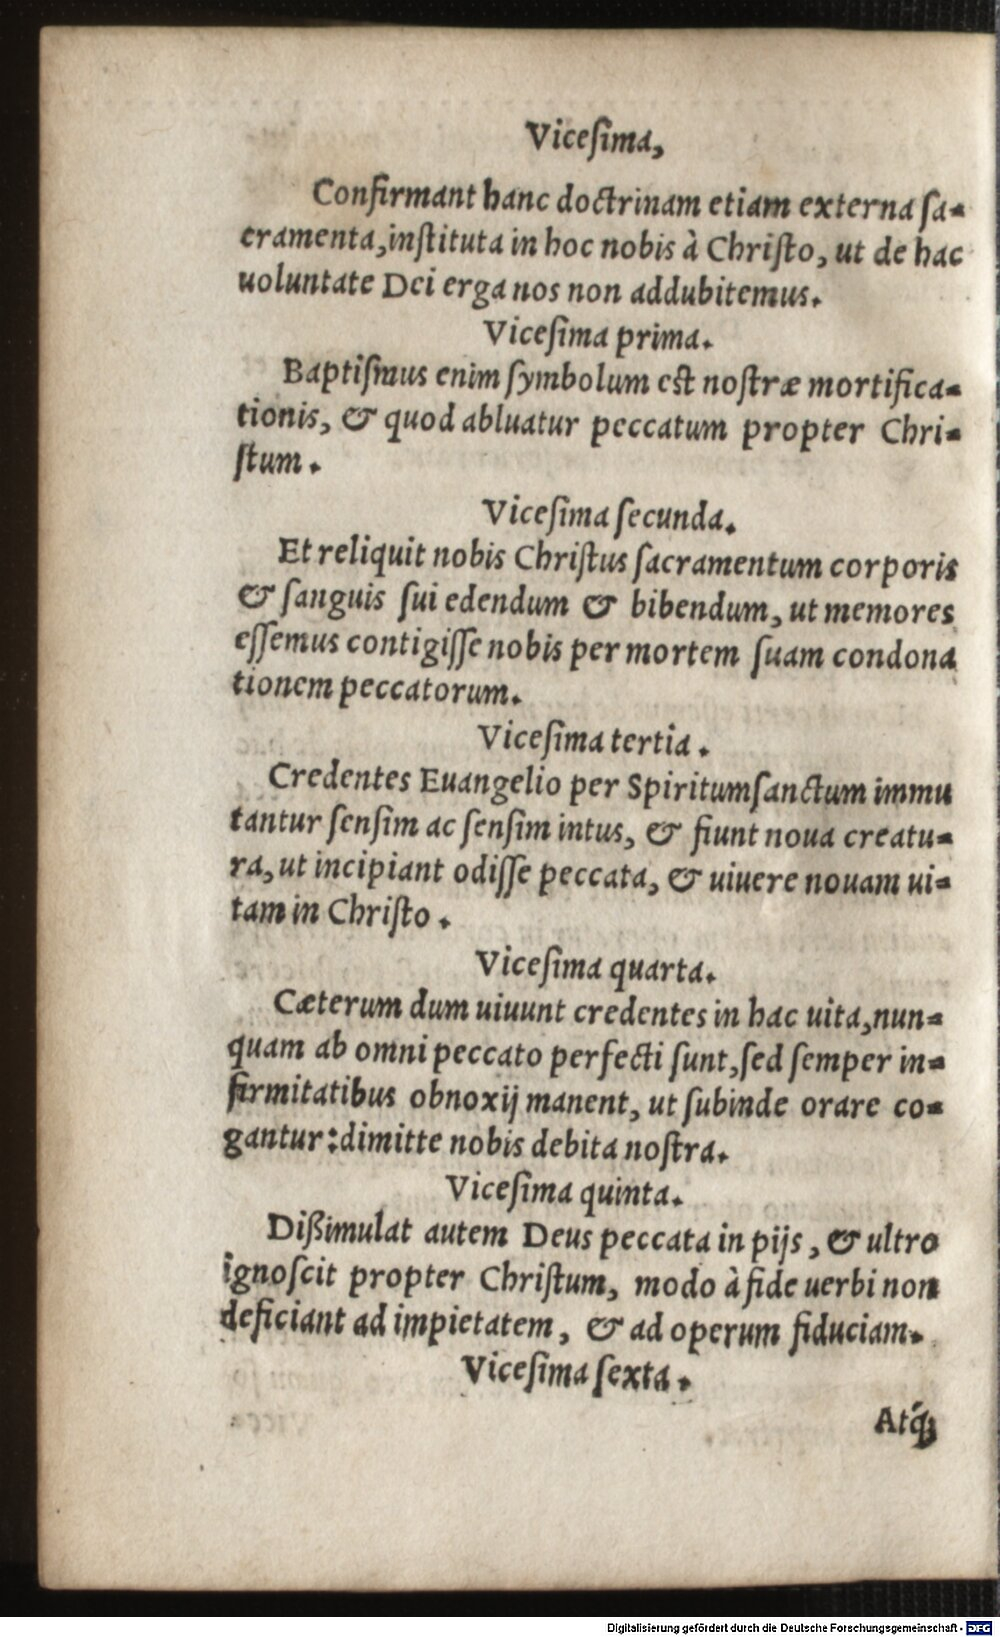 Viceſima,
Confirmant hanc doctrinam etiam externa ſa-
cramenta,inſtituta in hoc nobis à Chriſto, ut de hac
uoluntate Dei erga nos non addubitemus.
Viceſima prima.
Baptiſmus enim ſymbolum eſt noſtræ mortifica-
tionis, & quod abluatur peccatum propter Chri-
ſtum.
Viceſima ſecunda.
Et reliquit nobis Chriſtus ſacramentum corporis
& ſanguis ſui edendum & bibendum, ut memores
eſſemus contigiſſe nobis per mortem ſuam condona
tionem peccatorum.
Viceſima tertia.
Credentes Euangelio per Spiritumſanctum immu
tantur ſenſim ac ſenſim intus, & fiunt noua creatu-
ra, ut incipiant odiſſe peccata, & uiuere nouam ui-
tam in Chriſto.
Viceſima quarta.
Cæterum dum uiuunt credentes in hac uita,nun-
quam ab omni peccato perfecti ſunt,ſed ſemper in-
firmitatibus obnoxij manent, ut ſubinde orare co-
gantur:dimitte nobis debita noſtra.
Viceſima quinta.
Dißimulat autem Deus peccata in pijs, & ultro
ignoſcit propter Chriſtum, modo à fide uerbi non
deficiant ad impietatem, & ad operum fiduciam.
Viceſima ſexta.
Atq́;
Digitalisierung gefördert durch die Deutsche Forschungsgemeinschaft - DFG